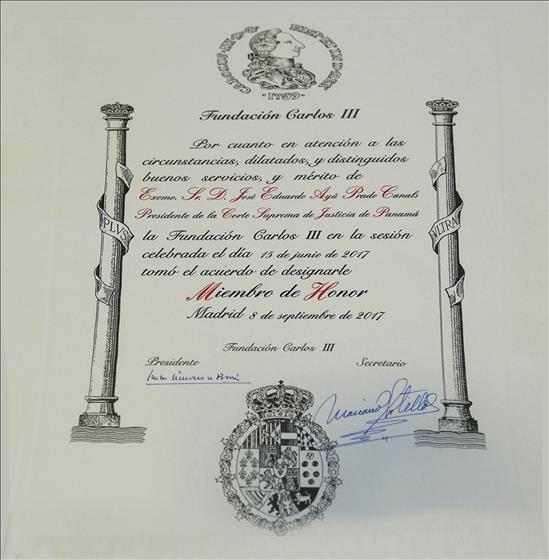 1759
Fundación Carlos III
Por cuanto en atención a las
circunstancias, dilatados, y distinguidos
buenos servicios, y mérito de
Excmo. Sr. D. José Eduardo Ayú Prado Canals
Presidente de la Corte Suprema de Justicia de Panamá
la Fundación Carlos III en la sesión
celebrada el día 15 de junio de 2017
tomó el acuerdo de designarle
Miembro de Honor
Madrid 8 de septiembre de 2017
Fundación Carlos III
Presidente Secretario
PLVS
VLTRA